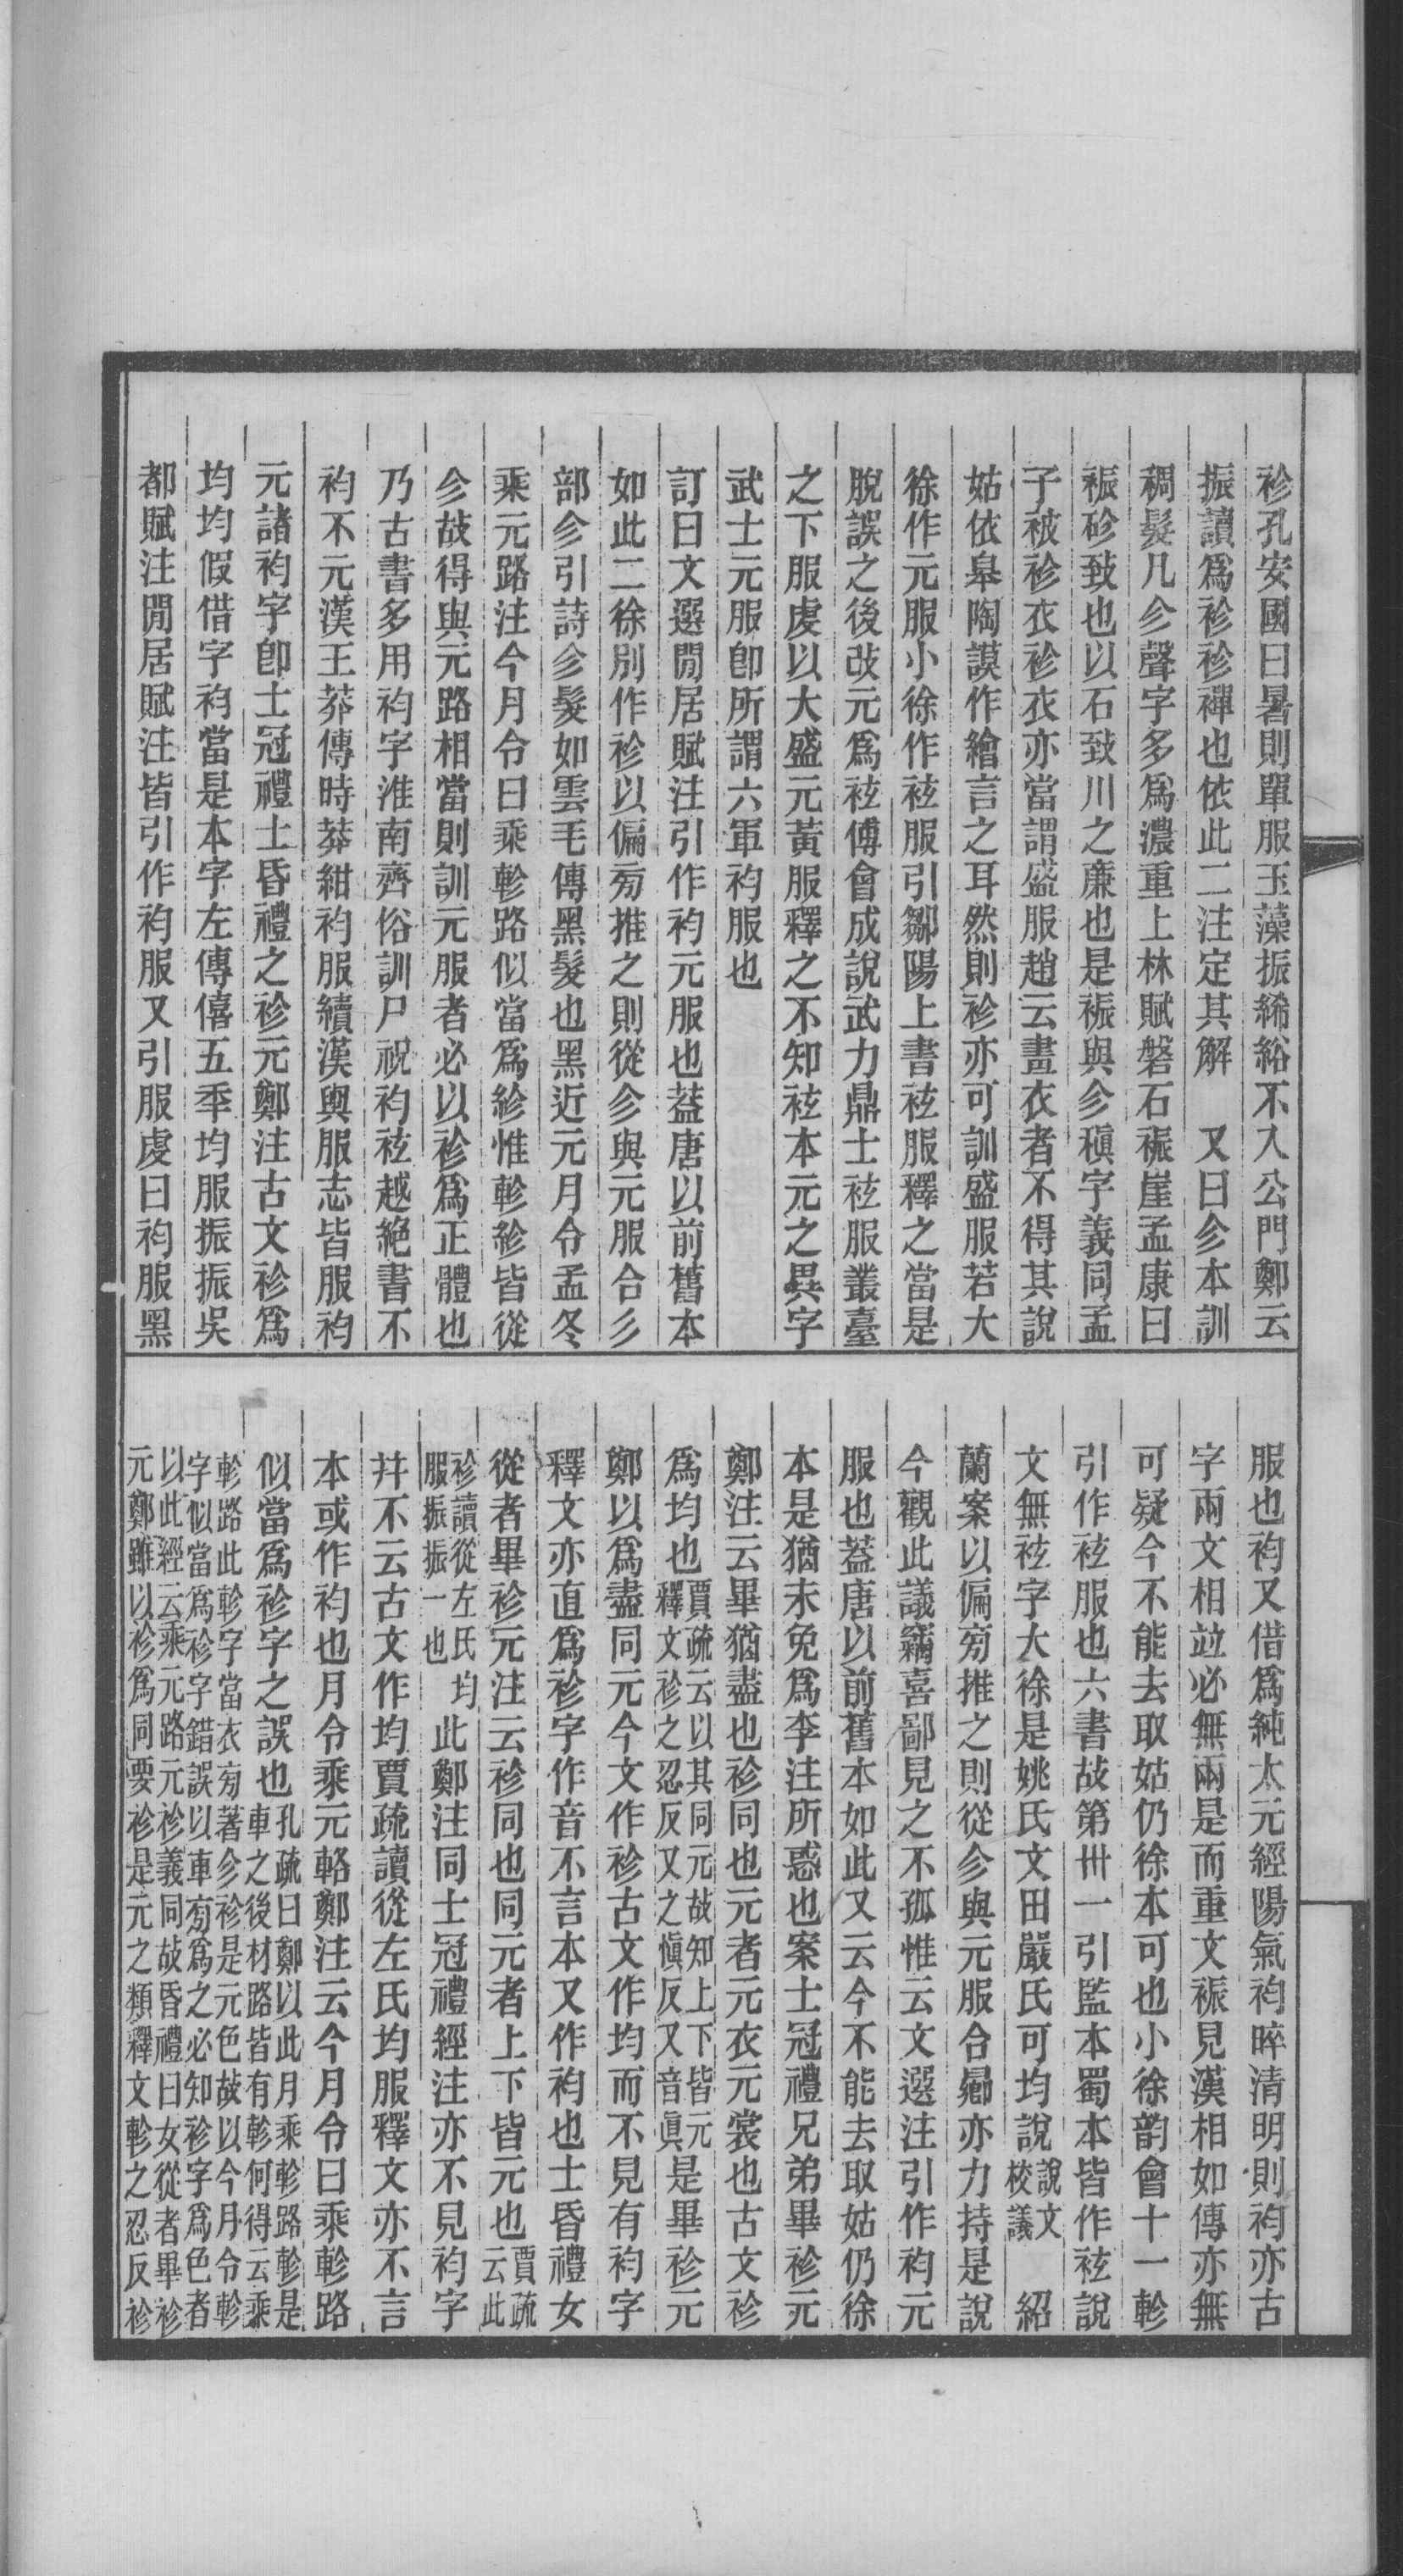 袗孔安國曰暑則單服玉藻振絺綌不入公門鄭云
振讀爲袗袗襌也依此二注定其解　又曰㐱本訓
稠髮凡㐱聲字多爲濃重上林賦磐石裖崖孟康曰
裖砂致也以石致川之廉也是裖與㐱稹字義同孟
子被袗衣袗衣亦當謂盛服趙云畫衣者不得其說
姑依皋陶謨作繪言之耳然則袗亦可訓盛服若大
徐作元服小徐作袨服引鄒陽上書袨服釋之當是
脫誤之後改元爲袨傅會成說武力鼎士袨服叢臺
之下服虔以大盛元黃服釋之不知袨本元之異字
武士元服卽所謂六軍袀服也
訂曰文選閒居賦注引作袀元服也葢唐以前舊本
如此二徐別作袗以偏㫄推之則從㐱與元服合彡
部㐱引詩㐱髮如雲毛傳黑髮也黑近元月令孟冬
乘元路注今月令曰乘軫路似當爲紾惟軫紾皆從
㐱故得與元路相當則訓元服者必以袗爲正體也
乃古書多用袀字淮南齊俗訓尸祝袀袨越絕書不
袀不元漢王莽傳時莽紺袀服續漢輿服志皆服袀
元諸袀字卽士冠禮士昏禮之袗元鄭注古文袗爲
均均假借字袀當是本字左傳僖五年均服振振吳
都賦注閒居賦注皆引作袀服又引服虔曰袀服黑
服也袀又借爲純太元經陽氣袀睟清明則袀亦古
字兩文相竝必無兩是而重文裖見漢相如傳亦無
可疑今不能去取姑仍徐本可也小徐韵會十一軫
引作袨服也六書故第卅一引監本蜀本皆作袨說
文無袨字大徐是姚氏文田嚴氏可均說說文校議　紹
蘭案以偏㫄推之則從㐱與元服合鄙亦力持是說
今觀此議竊喜鄙見之不孤惟云文選注引作袀元
服也葢唐以前舊本如此又云今不能去取姑仍徐
本是猶未免爲李注所惑也案士冠禮兄弟畢袗元
鄭注云畢猶盡也袗同也元者元衣元裳也古文袗
爲均也賈疏云以其同元故知上下皆元釋文袗之忍反又之愼反又音眞是畢袗元
鄭以爲盡同元今文作袗古文作均而不見有袀字
釋文亦直爲袗字作音不言本又作袀也士昏禮女
從者畢袗元注云袗同也同元者上下皆元也賈疏云此
袗讀從左氏均服振振一也此鄭注同士冠禮經注亦不見袀字
幷不云古文作均賈疏讀從左氏均服釋文亦不言
本或作袀也月令乘元輅鄭注云今月令曰乘軫路
似當爲袗字之誤也孔疏曰鄭以此月乘軫路軫是車之後材路皆有軫何得云乘
軫路此軫字當衣㫄著㐱袗是元色故以今月令軫字似當爲袗字錯誤以車㫄爲之必知袗字爲色者
以此經云乘元路元袗義同故昏禮曰女從者畢袗元鄭雖以袗爲同要袗是元之類釋文軫之忍反袗